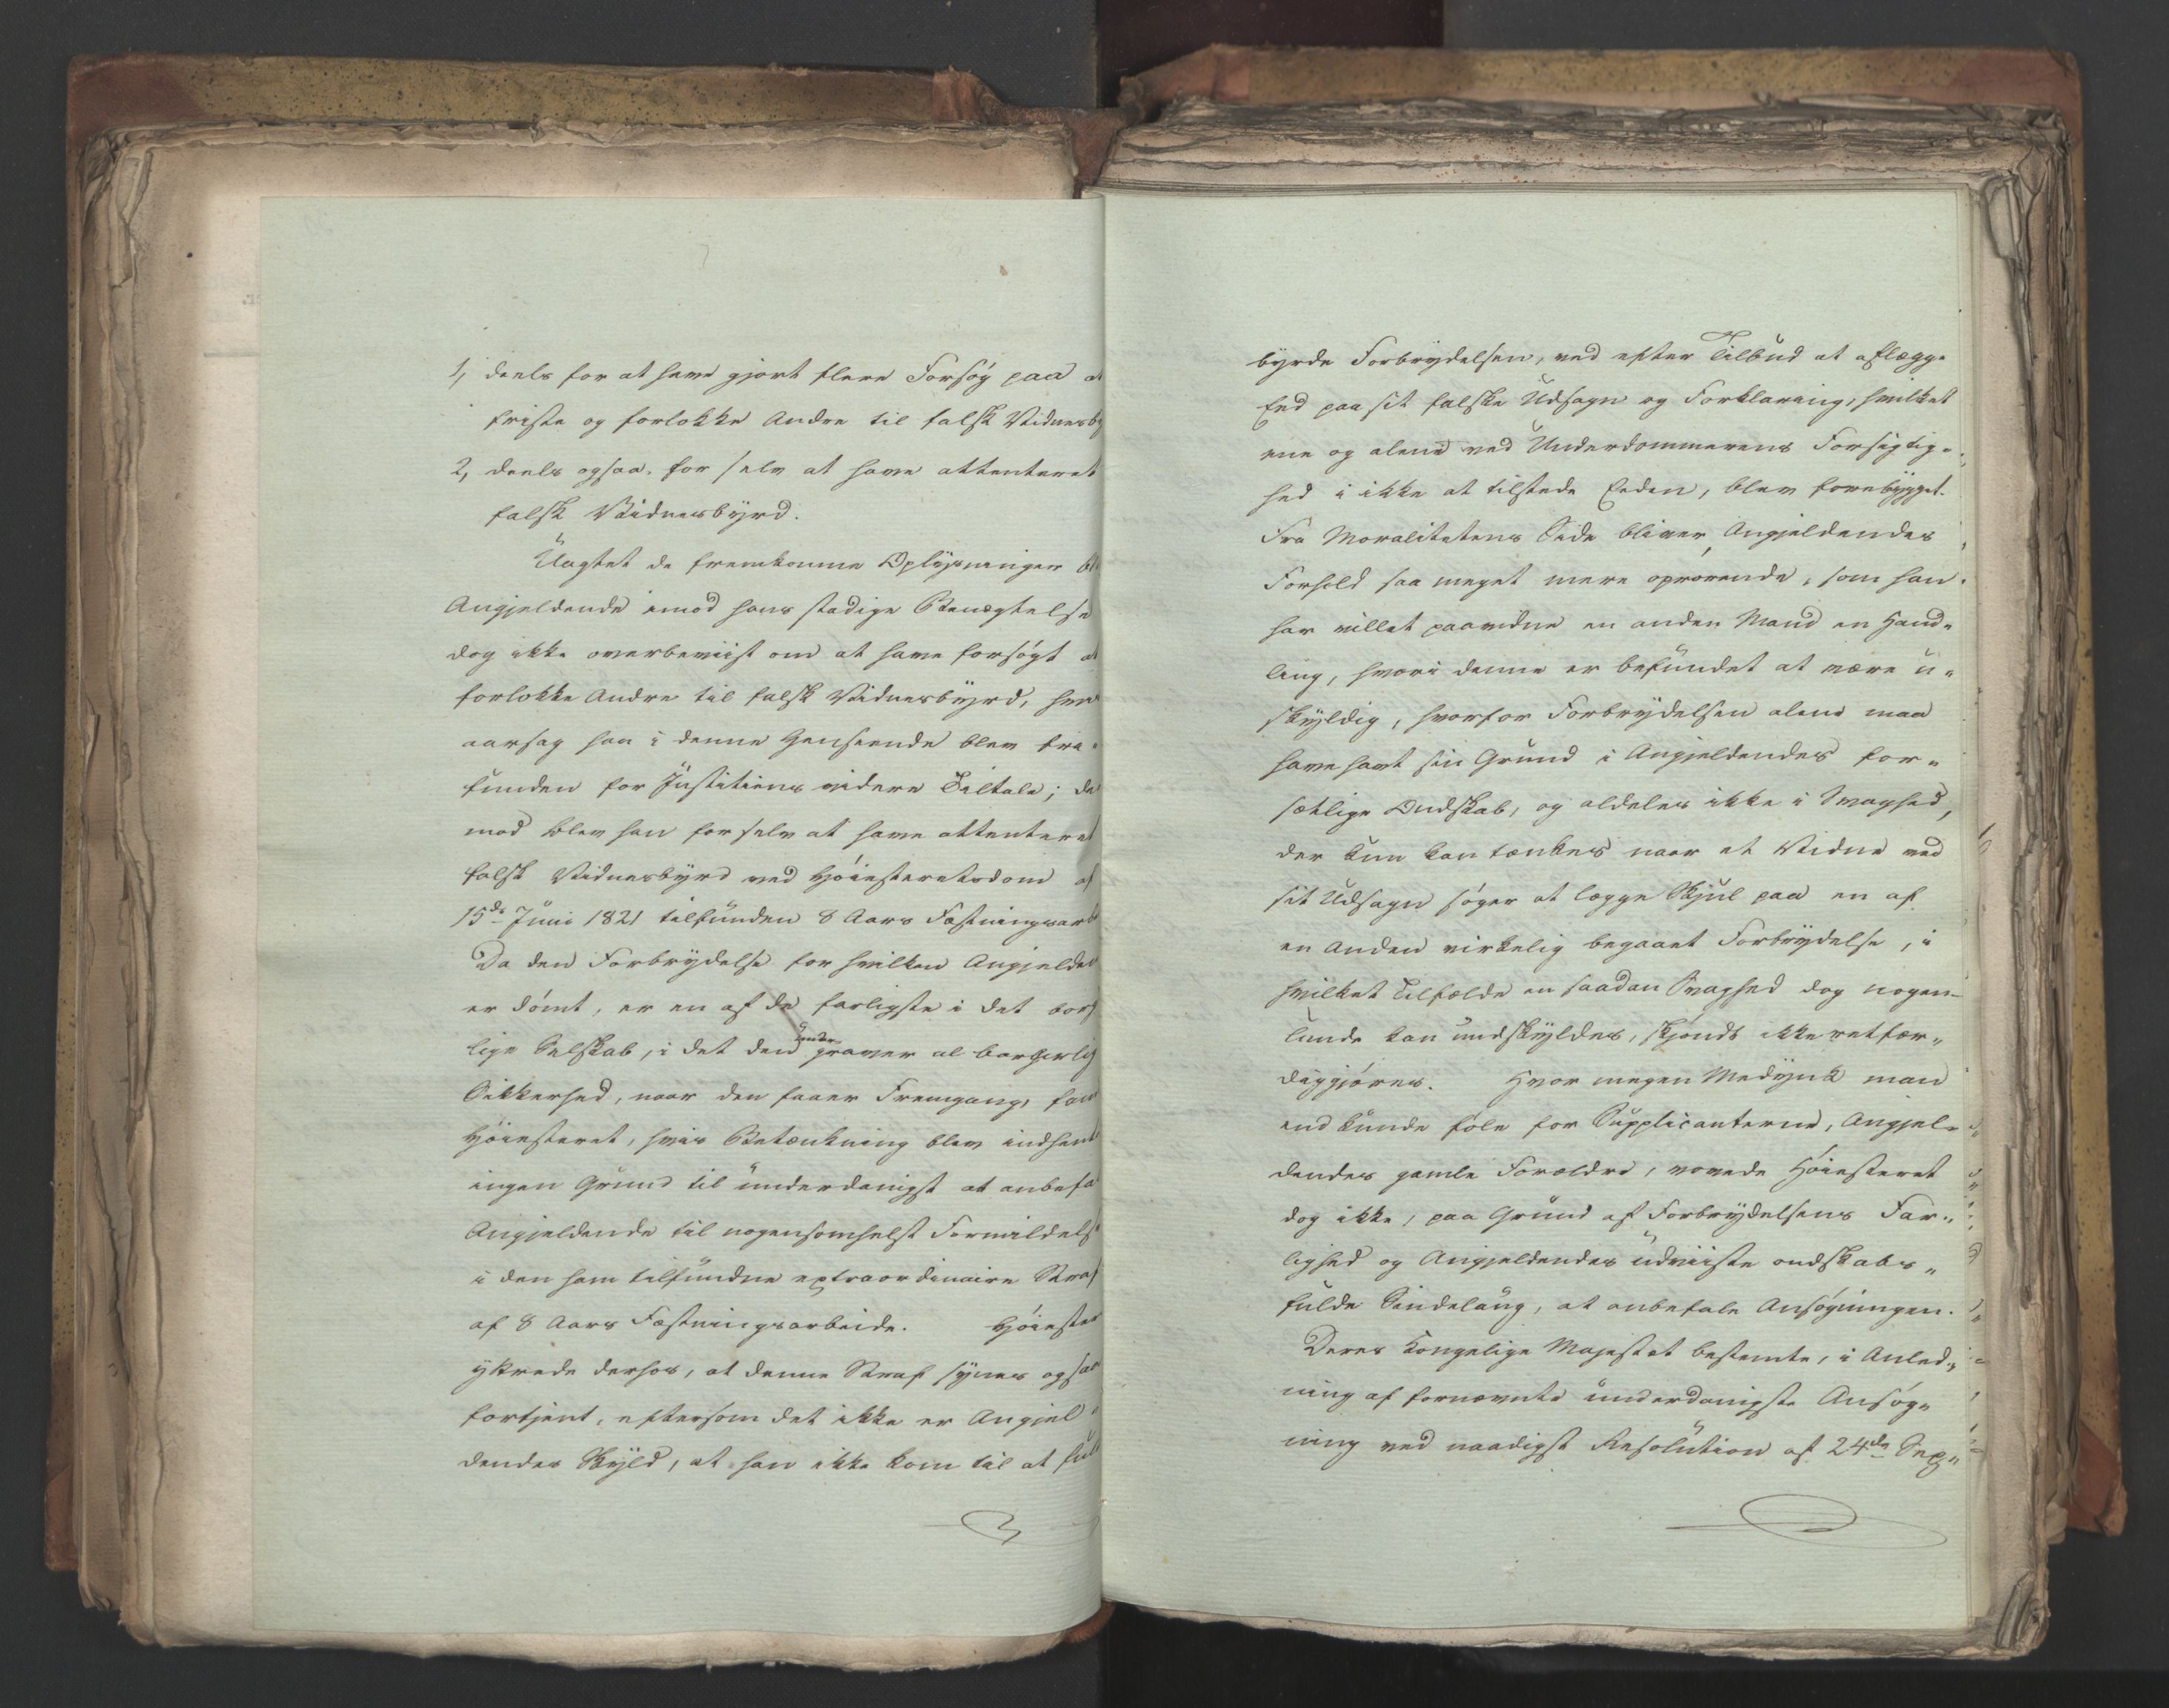 1, deels for at have gjort flere Forsøg paa at
friste og forlokke Andre til falsk Vidnesby
2, deels ogsaa, for selv at have attenteret
falsk Vidnesbyrd.
Uagtet de fremkomne Oplysninger bl
Angjeldende imod hans stadige Benægtelse
dog ikke overbeviist om at have forsøgt at
forlokke Andre til falsk Vidnesbyrd, hvor
aarsag han i denne Henseende blev fra-
funden for Justitiens videre Tiltale; de
mod blev han for selv at have attenteret
falsk Vidnesbyrd ved Høiesteretsdom af
15de Junii 1821 tilfunden 8 Aars Fæstningsarb
Da den Forbrydelse for hvilken Angjelden
er dømt, er en af de farligste i det borg
lige Selskab, i det den under graver al borgerlig
Sikkerhed, naar den faaer Fremgang, fan
Høiesteret, hvis Betænkning blev indhent
ingen Grund til underdanigst at anbefa
Angjeldende til nogensomhelst Formildelse
i den ham tilfundne extraordinaire Straf
af 8 Aars Fæstningsarbeide. Høiester
yttrede derhos, at denne Straf synes ogsaa
fortjent, eftersom det ikke er Angjel-
dendes Skyld, at han ikke kom til at ful
byrde Forbrydelsen, ved efter Tilbud at aflægge
Eed paa sit falske Udsagn og Forklaring, hvilket
ene og alene ved Underdommerens Forsigtig-
hed i ikke at tilstede Eeden, blev forebygget.
Fra Moralitetens Side bliver Angjeldendes
Forhold saa meget mere oprørende, som han
har villet paavidne en anden Mand en Hand-
ling, hvori denne er befundet at være u-
skyldig, hvorfor Forbrydelsen alene maa
have havt sin Grund i Angjeldendes for-
sætlige Ondskab, og aldeles ikke i Svaghed,
der kun kan tænkes naar et Vidne ved
sit Udsagn søger at lægge Skjul paa en af
en Anden virkelig begaaet Forbrydelse, i
hvilket Tilfælde en saadan Svaghed dog nogen-
lunde kan undskyldes, skjøndt ikke retfær-
diggjøres. Hvor megen Medynk man
end kunde føle for Supplicanterne, Angjel-
dendes gamle Forældre, vovede Høiesteret
dog ikke, paa Grund af Forbrydelsens Far-
lighed og Angjeldendes udviiste ondskabs-
fulde Sindelaug, at anbefale Ansøgningen.
Deres Kongelige Majestæt bestemte, i Anled-
ning af fornævnte underdanigste Ansøg-
ning ved naadigst Resolution af 24de Sep-